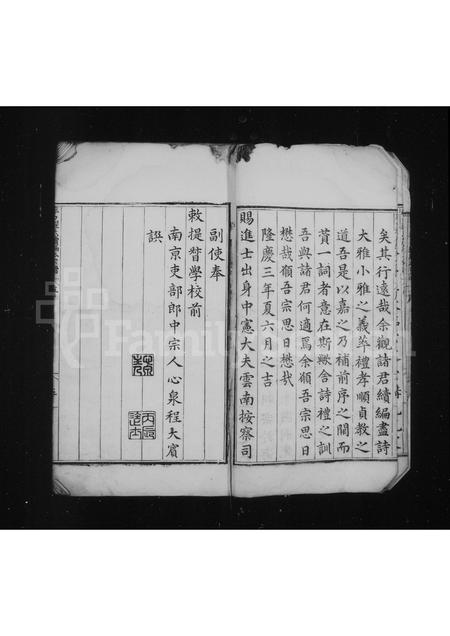 矣其行遠哉余觀諸君續編盡詩
大雅小雅之義葬禮孝順貞教之
道吾是以嘉之乃補前序之闕而
賛一詞者意在斯歟舍詩禮之訓
吾與諸君何適焉余嶺吾宗思日
懋哉嶺吾宗思日懋哉
隆慶三年夏六月之吉
賜進士出身中憲大夫雲南按察司
副使奉
敕提督學校前
南京吏部郎中宗人心泉程大賓
譔
丙辰
進士